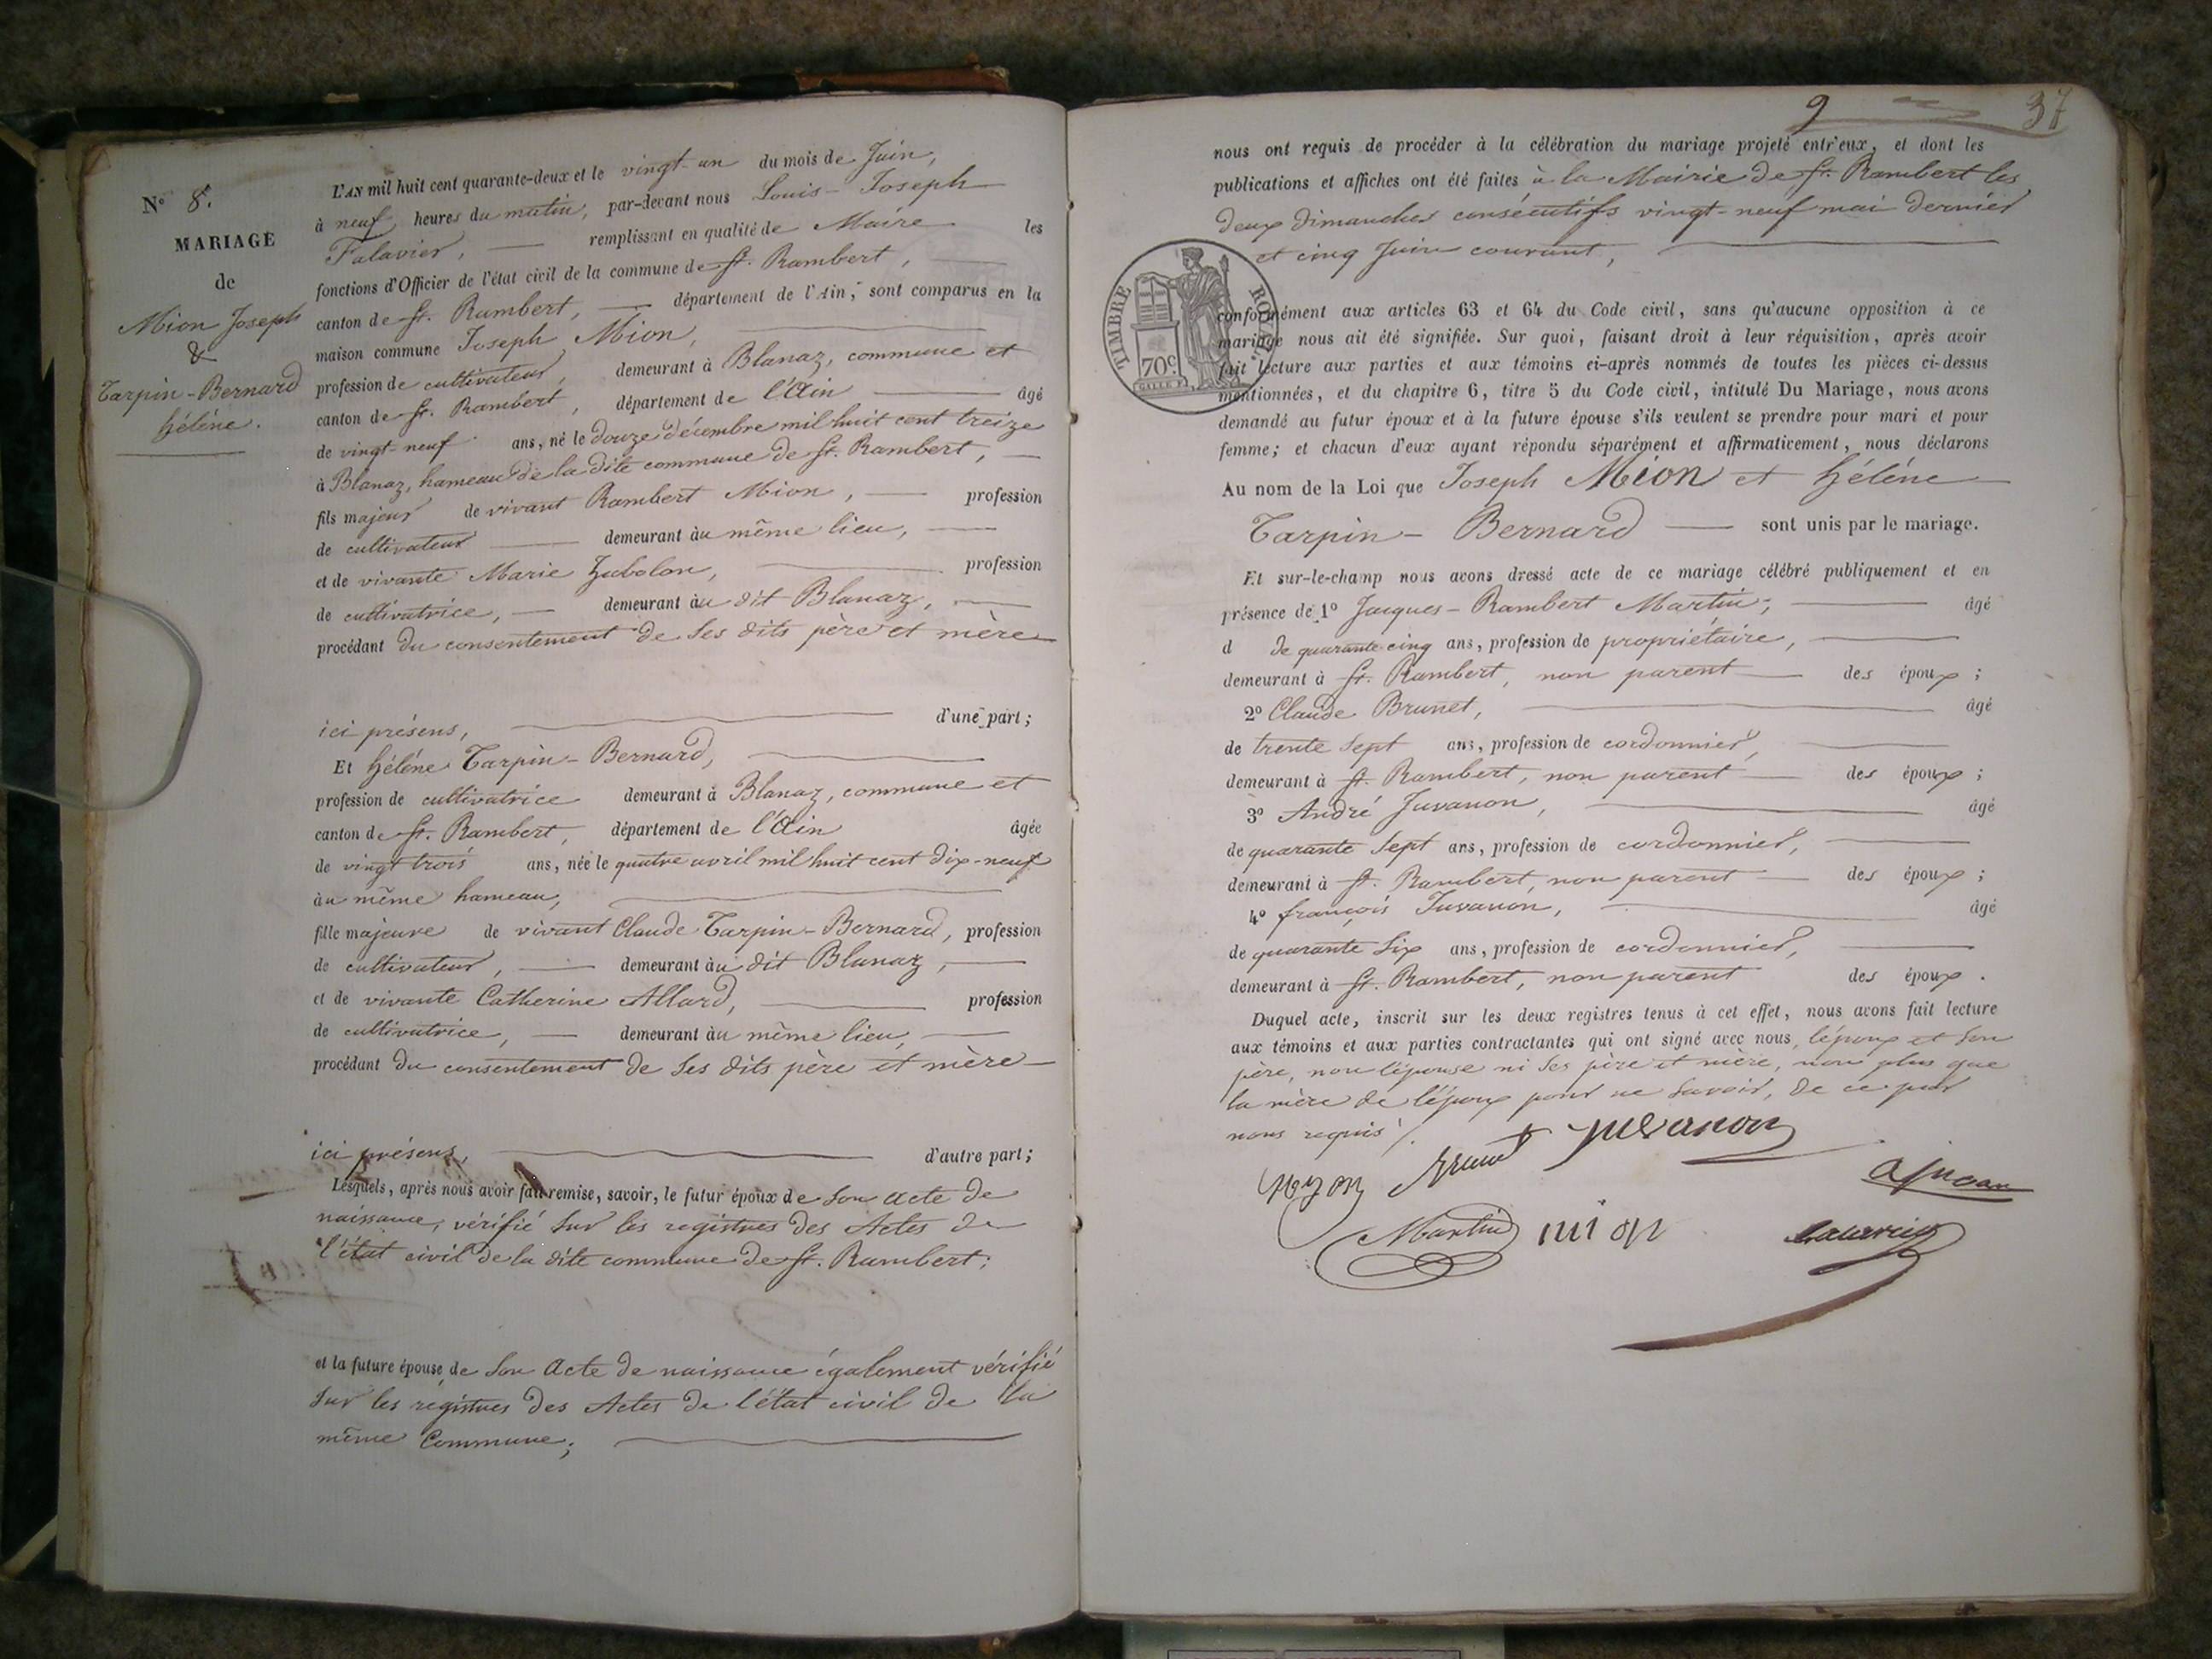 N° 8.
MARIAGE
de
Mion Joseph
&
Tarpin-Bernard
hélène.
L'AN mil huit cent quarante-deux et le vingt-un du mois de Juin,
à neuf heures du matin, par-devant nous Louis-Joseph
Falavier, remplissant en qualité de Maire les
fonctions d'Officier de l'état civil de la commune de St. Rambert,
canton de St. Rambert, département de l'Ain, sont comparus en la
maison commune Joseph Mion,
profession de cultivateur, demeurant à Blanaz, commune et
canton de St. Rambert, département de l'Ain âgé
de vingt-neuf ans, né le douze décembre mil huit cent treize
à Blanaz, hameau de la dite commune de St. Rambert,
fils majeur de vivant Rambert Mion, profession
de cultivateur demeurant au même lieu,
et de vivante Marie Jubolon, profession
de cultivatrice, demeurant au dit Blanaz,
procédant du consentement de ses dits père et mère
ici présens, d'une part;
Et hélène Tarpin-Bernard,
profession de cultivatrice demeurant à Blanaz, commune et
canton de St. Rambert, département de l'Ain âgée
de vingt trois ans, née le quatre avril mil huit cent dix-neuf
au même hameau,
fille majeure de vivant Claude Tarpin-Bernard, profession
de cultivateur, demeurant au dit Blanaz,
et de vivante Catherine Allard, profession
de cultivatrice, demeurant au même lieu,
procédant du consentement de ses dits père et mère
ici présens, d'autre part;
Lesquels, après nous avoir fait remise, savoir, le futur époux de son acte de
naissance, vérifié sur les registres des Actes de
l'état civil de la dite commune de St. Rambert;
et la future épouse de son acte de naissance également vérifié
sur les registres des Actes de l'état civil de la
même Commune;
9
37
nous ont requis de procéder à la célébration du mariage projeté entr'eux, et dont les
publications et affiches ont été faites à la Mairie de St. Rambert les
deux dimanches consécutifs vingt-neuf mai dernier
et cinq Juin courant,
TIMBRE ROYAL
70c.
conformément aux articles 63 et 64 du Code civil, sans qu'aucune opposition à ce
mariage nous ait été signifiée. Sur quoi, faisant droit à leur réquisition, après avoir
fait lecture aux parties et aux témoins ci-après nommés de toutes les pièces ci-dessus
mentionnées, et du chapitre 6, titre 5 du Code civil, intitulé Du Mariage, nous avons
demandé au futur époux et à la future épouse s'ils veulent se prendre pour mari et pour
femme; et chacun d'eux ayant répondu séparément et affirmativement, nous déclarons
Au nom de la Loi que Joseph Mion et hélène
Tarpin-Bernard sont unis par le mariage.
Et sur-le-champ nous avons dressé acte de ce mariage célébré publiquement et en
présence de 1° Jacques-Rambert Martin, âgé
d de quarante cinq ans, profession de propriétaire,
demeurant à St. Rambert, non parent des époux;
2° Claude Brunet, âgé
de trente sept ans, profession de cordonnier,
demeurant à St. Rambert, non parent des époux;
3° André Juvanon, âgé
de quarante sept ans, profession de cordonnier,
demeurant à St. Rambert, non parent des époux;
4° françois Juvanon, âgé
de quarante six ans, profession de cordonnier,
demeurant à St. Rambert, non parent des époux.
Duquel acte, inscrit sur les deux registres tenus à cet effet, nous avons fait lecture
aux témoins et aux parties contractantes qui ont signé avec nous, l'époux et son
père, non l'épouse ni ses père et mère, non plus que
la mère de l'époux pour ne savoir, de ce par
nous requis /.
Brunet Juvanon
Martin mion